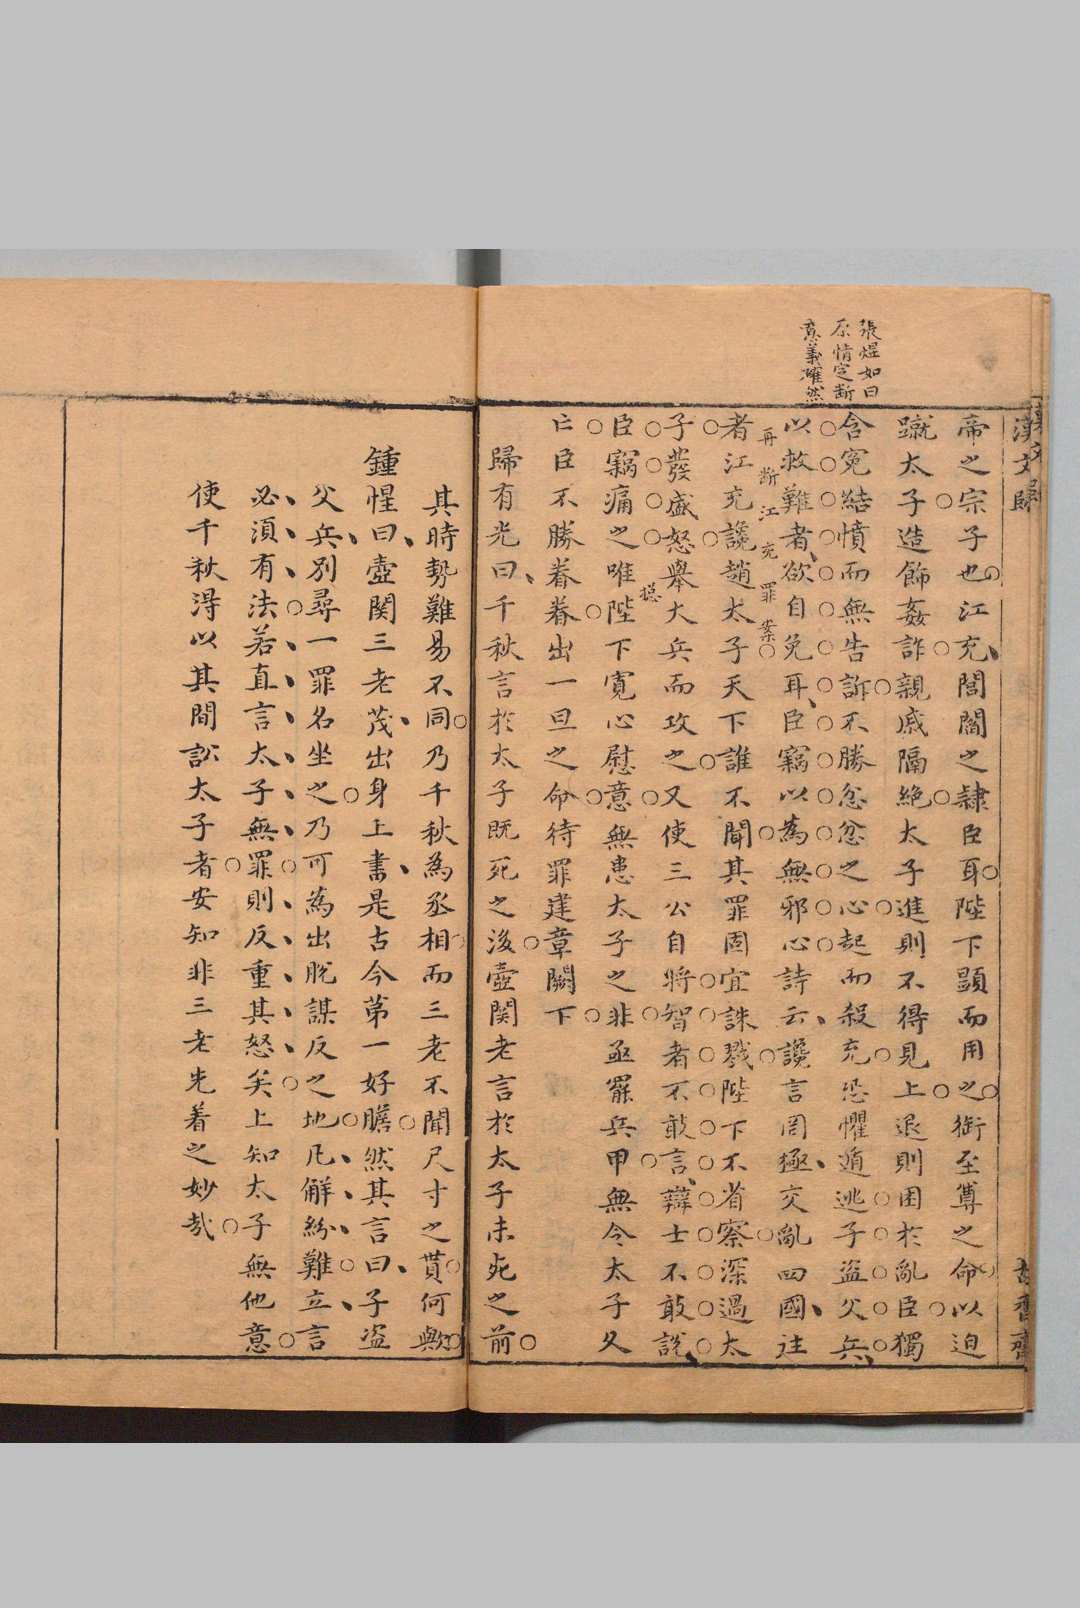 漢文歸
古香齋
張焜如曰
原情定斷
意義確然
帝之宗子也江充閭閻之隷臣耳陛下顯而用之銜至尊之命以迫
蹴太子造飾姦詐親戚隔絶太子進則不得見上退則困於亂臣獨
含寃結憤而無告訴不勝忿忿之心起而殺充恐懼遁逃子盜父兵
以救難者欲自免耳臣竊以為無邪心詩云讒言罔極交亂四國往
再斷江充罪案
者江充讒趙太子天下誰不聞其罪固宜誅戮陛下不省察深過太
子發盛怒舉大兵而攻之又使三公自將智者不敢言辯士不敢說
臣竊痛之唯陛下寬心慰意無患太子之非亟罷兵甲無令太子久
亡臣不勝眷眷出一旦之命待罪建章闕下
歸有光曰千秋言於太子既死之後壺関老言於太子未死之前
其時勢難易不同乃千秋為丞相而三老不聞尺寸之賞何歟
鍾惺曰壺関三老茂出身上書是古今第一好膽然其言曰子盜
父兵別尋一罪名坐之乃可為出脫謀反之地凡觧紛難立言
必須有法若直言太子無罪則反重其怒矣上知太子無他意
使千秋淂以其間訟太子者安知非三老先着之妙哉